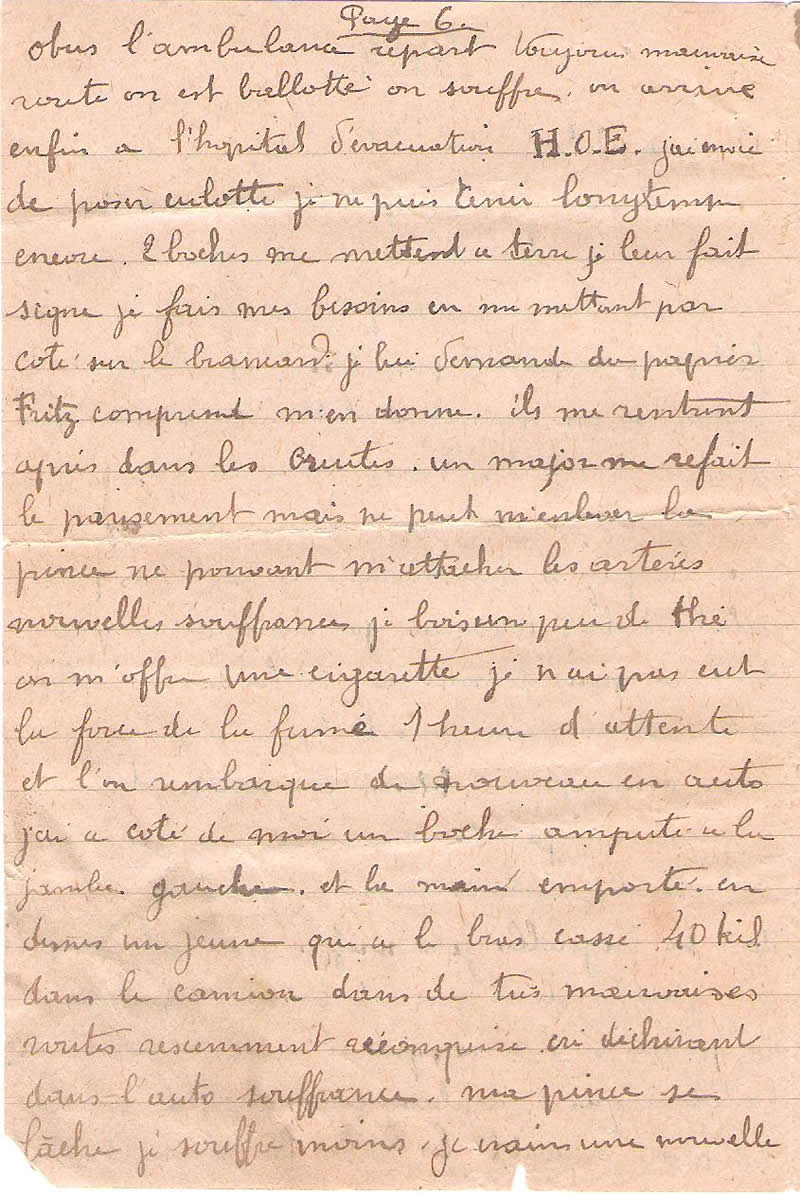 Page 6.
obus l'ambulance repart toujours mauvaise
route on est ballotté on souffre. on arrive
enfin a l'hopital d'evacuation H.O.E. j'ai envie
de poser culotte je ne puis tenir longtemp
encore. 2 boches me mettend a terre je leur fait
signe je fais mes besoins en me mettant par
coté sur le brancard. je lui demande du papier
Fritz comprend m'en donne. ils me rentrent
aprés dans les Creutes. un major me refait
le pansement mais ne peut m'enlever la
pince ne pouvant m'attacher les artères
nouvelles souffrances je bois un peu de thé
on m'offre une cigarette je n'ai pas eut
la force de la fumé 1 heure d'attente
et l'on rembarque de nouveau en auto
j'ai a coté de moi un boche amputé a la
jambe gauche. et la main emporté. en
dessus un jeune qui a le bras cassé 40 kil
dans le camion dans de tres mauvaises
routes rescemment reconquise cri déchirant
dans l'auto souffrance. ma pince se
lâche je souffre moins. je crains une nouvelle